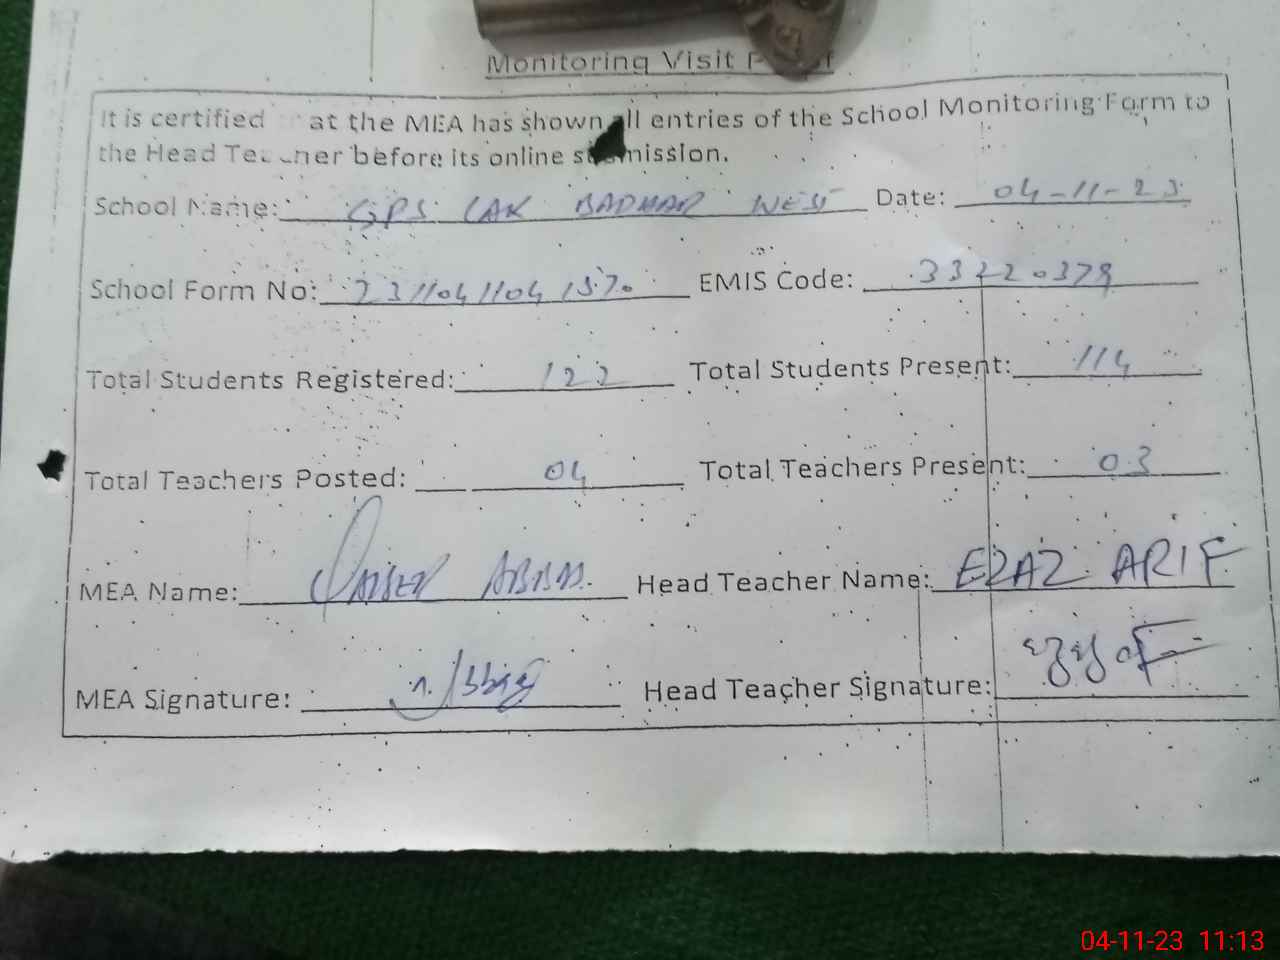 Monitoring Visit
It is certified at the MEA has shown all entries of the School Monitoring Form to
the Head Teacher before its online submission.
School Name: GPS LAK BADHAR WEST Date: 04-11-23
School Form No: 23110411041570 EMIS Code: 33220379
Total Students Registered: 122 Total Students Present: 114
Total Teachers Posted: 04 Total Teachers Present: 03
MEA Name: QAISER ABBAS. Head Teacher Name: EZAZ ARIF
MEA Signature: Head Teacher Signature:
04-11-23 11:13